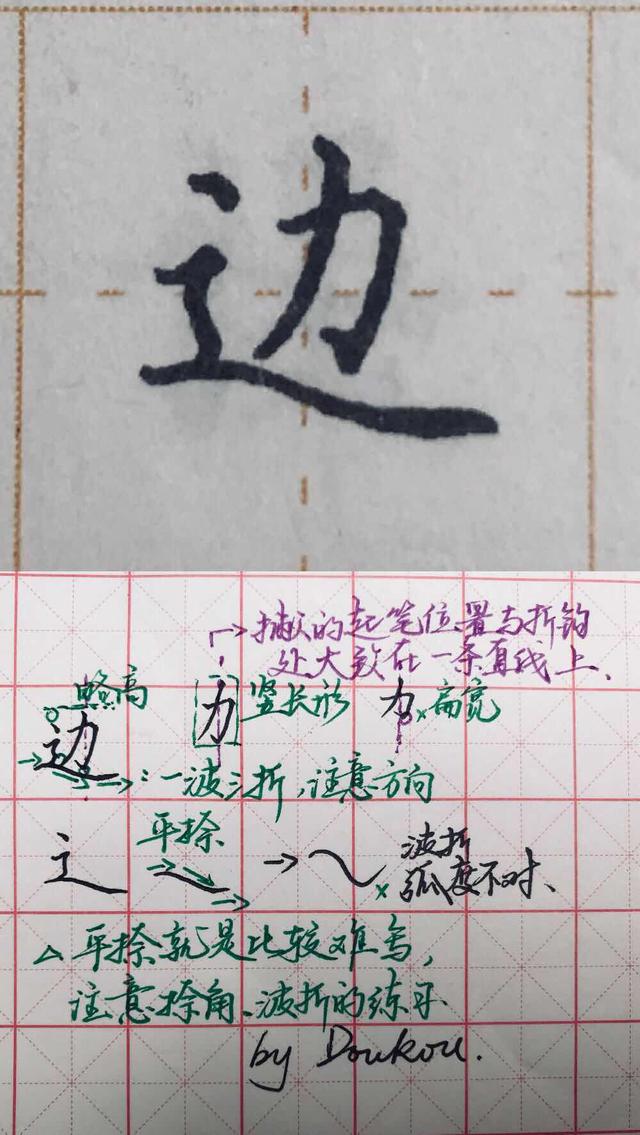 边
撇的起笔位置与折钩
处大致在一条直线上、
略高
边
力 竖长形 力 × 扁宽
：一波三折，注意方向
平捺
辶 → × 波折
弧度不对、
△ 平捺就是比较难写，
注意捺角、波折的练习.
by Doukou.